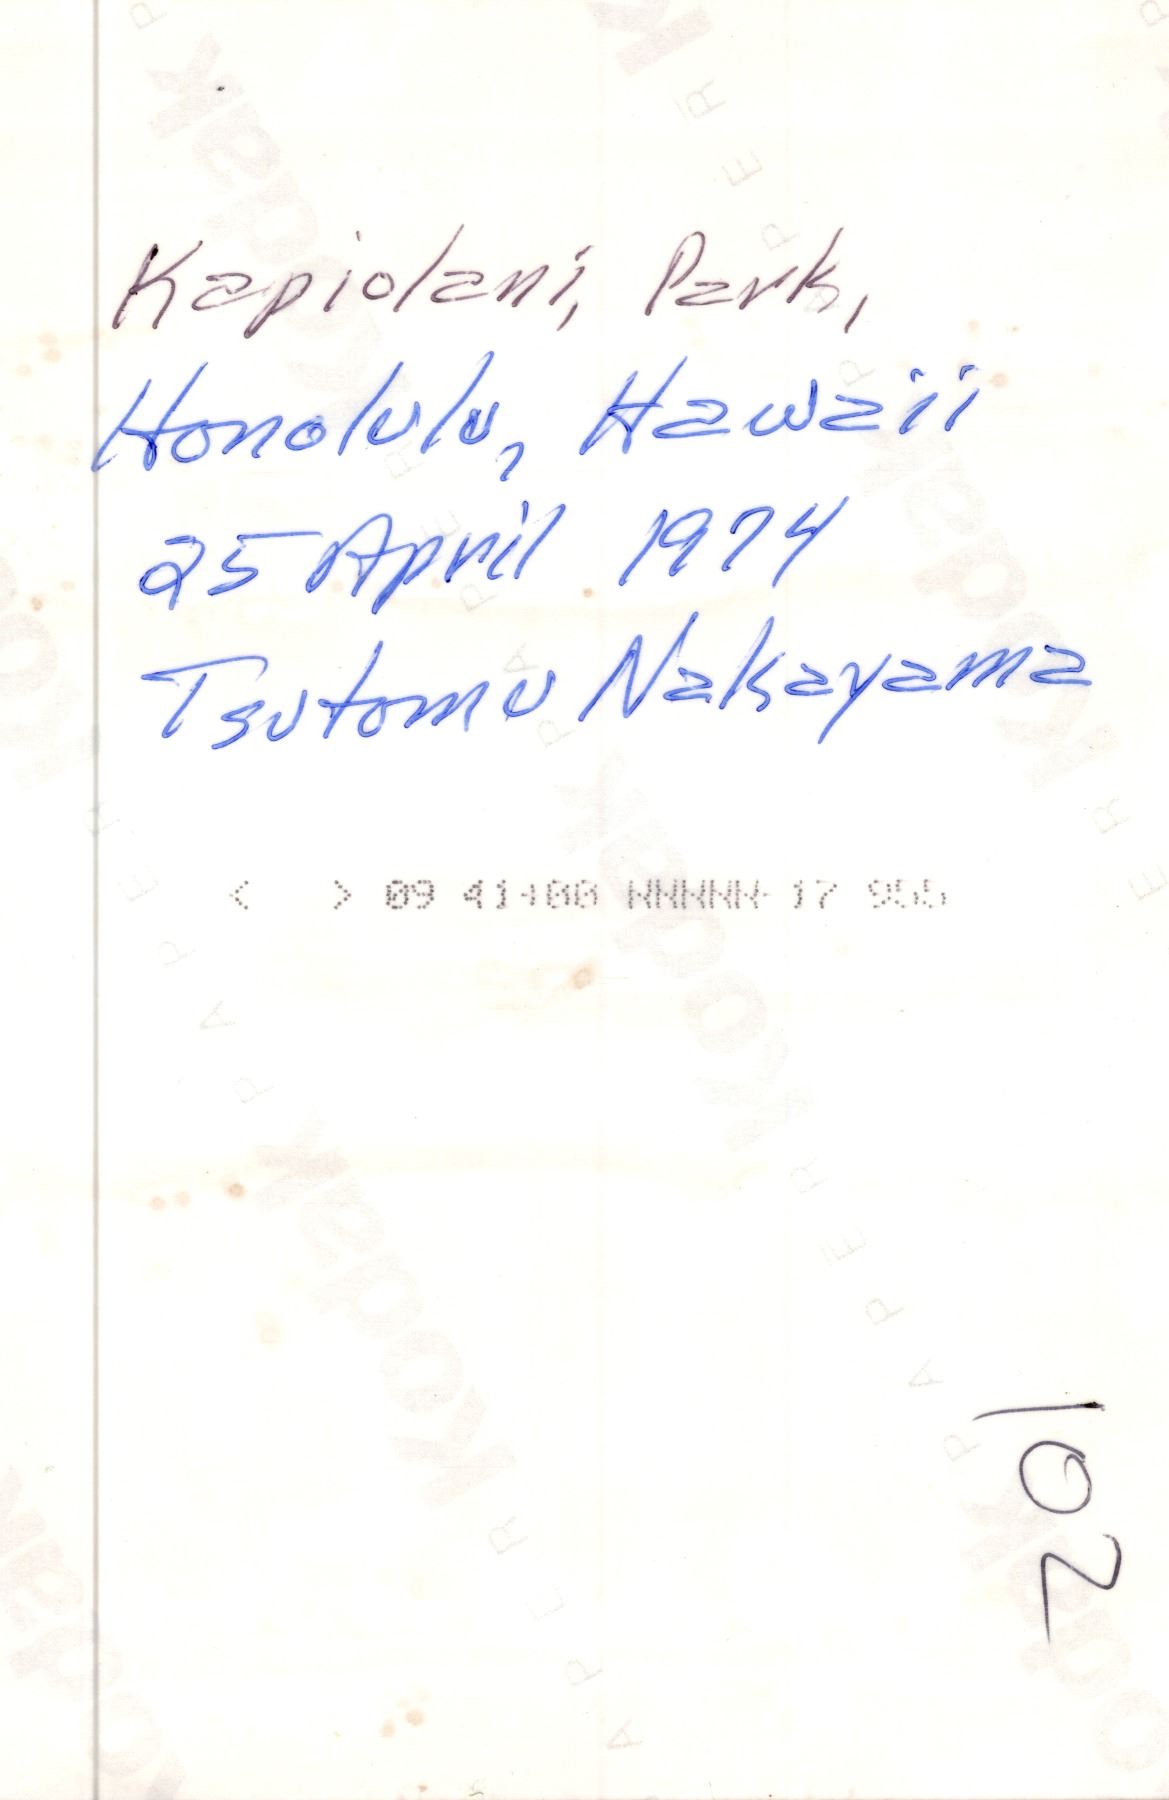 Kapiolani, Park,
Honolulu, Hawaii
25 April 1974
Tsutomu Nakayama
< > 09 41+00 NNNNN 17 955
102
Kodak
PAPER